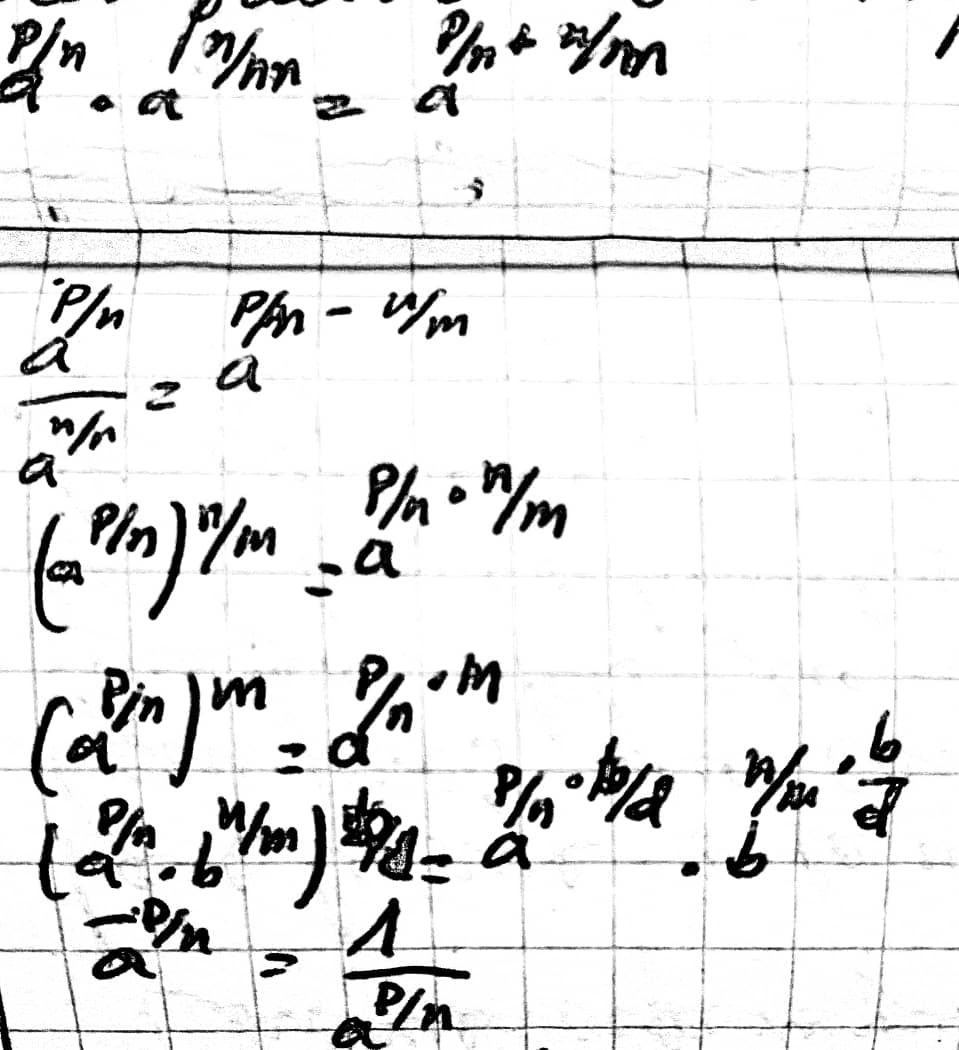 a^{p/n} · a^{n/m} = a^{p/n + n/m}
\frac{a^{p/n}}{a^{n/n}} = a^{p/n - n/m}
(a^{p/n})^{n/m} = a^{p/n · n/m}
(a^{p/n})^{m} = a^{p/n · m}
(a^{p/n} · b^{n/m})^{b/d} = a^{p/n · b/d} · b^{n/m · \frac{b}{d}}
a^{-p/n} = \frac{1}{a^{p/n}}